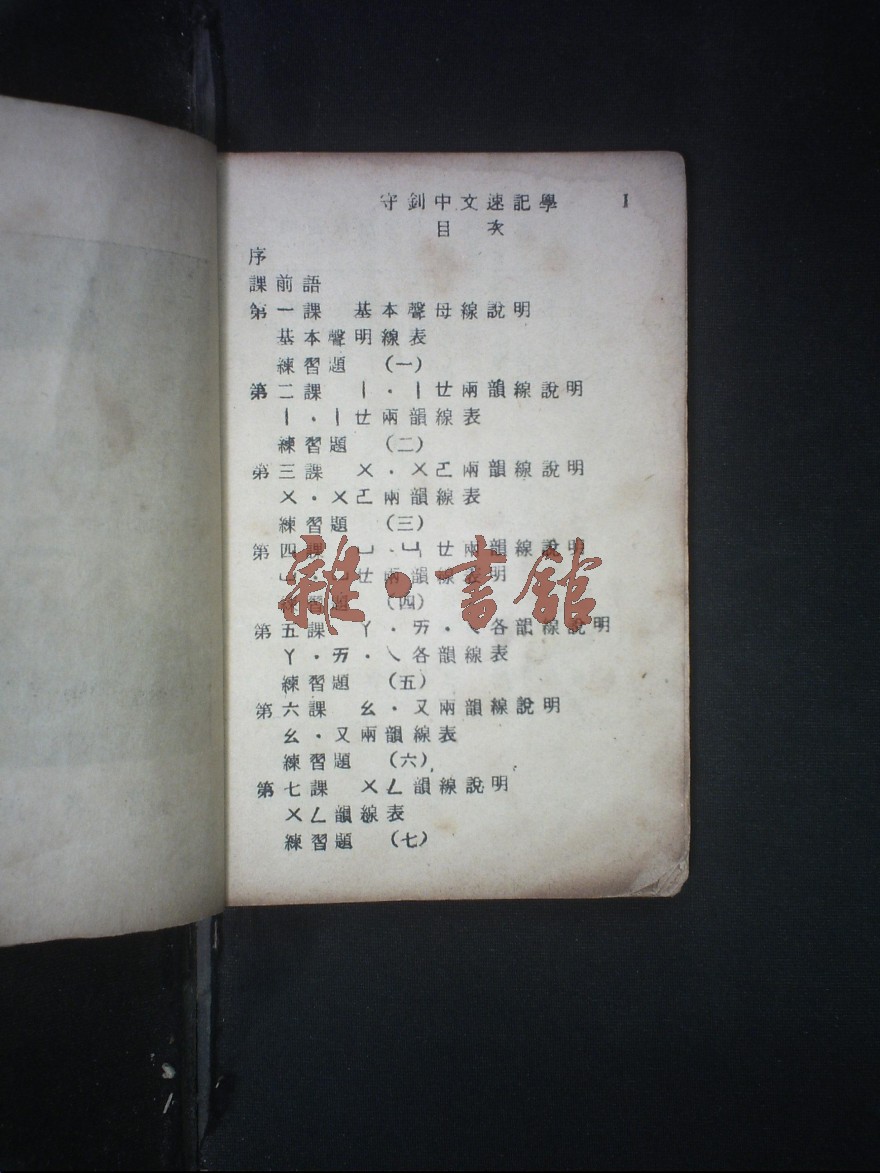 守釗中文速記學 I
目 次
序
課前語
第一課 基本聲母線說明
基本聲明線表
練習題 (一)
第二課 丨・丨ㄝ兩韻線說明
丨・丨ㄝ兩韻線表
練習題 (二)
第三課 ㄨ・ㄨㄛ兩韻線說明
ㄨ・ㄨㄛ兩韻線表
練習題 (三)
第四課 ㄩ・ㄩㄝ兩韻線說明
ㄩ・ㄩㄝ兩韻線表明
練習題 (四)
第五課 ㄚ・ㄞ・ㄟ各韻線說明
ㄚ・ㄞ・ㄟ各韻線表
練習題 (五)
第六課 ㄠ・ㄡ兩韻線說明
ㄠ・ㄡ兩韻線表
練習題 (六)
第七課 ㄨㄥ韻線說明
ㄨㄥ韻線表
練習題 (七)
雜・書館